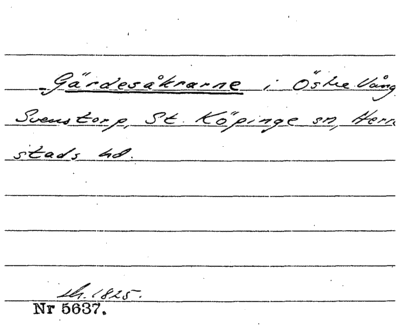 Gärdesåkrarne i Östre Vång
Svenstorp, St. Köpinge sn, Herre
stads hd.
1825.
Nr 5637.